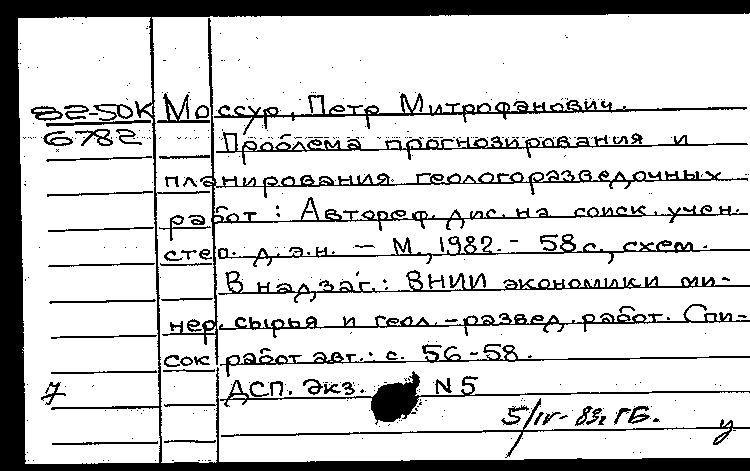 82-50К Моссур, Петр Митрофанович.
6782 Проблема прогнозирования и
планирования геологоразведочных
работ : Автореф. дис. на соиск. учен.
степ. д. э. н. - М., 1982. - 58 с., схем.
В надзаг.: ВНИИ экономики ми-
нер. сырья и геол.-развед. работ. Спи-
сок работ авт.: с. 56-58.
ДСП. Экз. N 5
5/IV- 83г ГБ. у